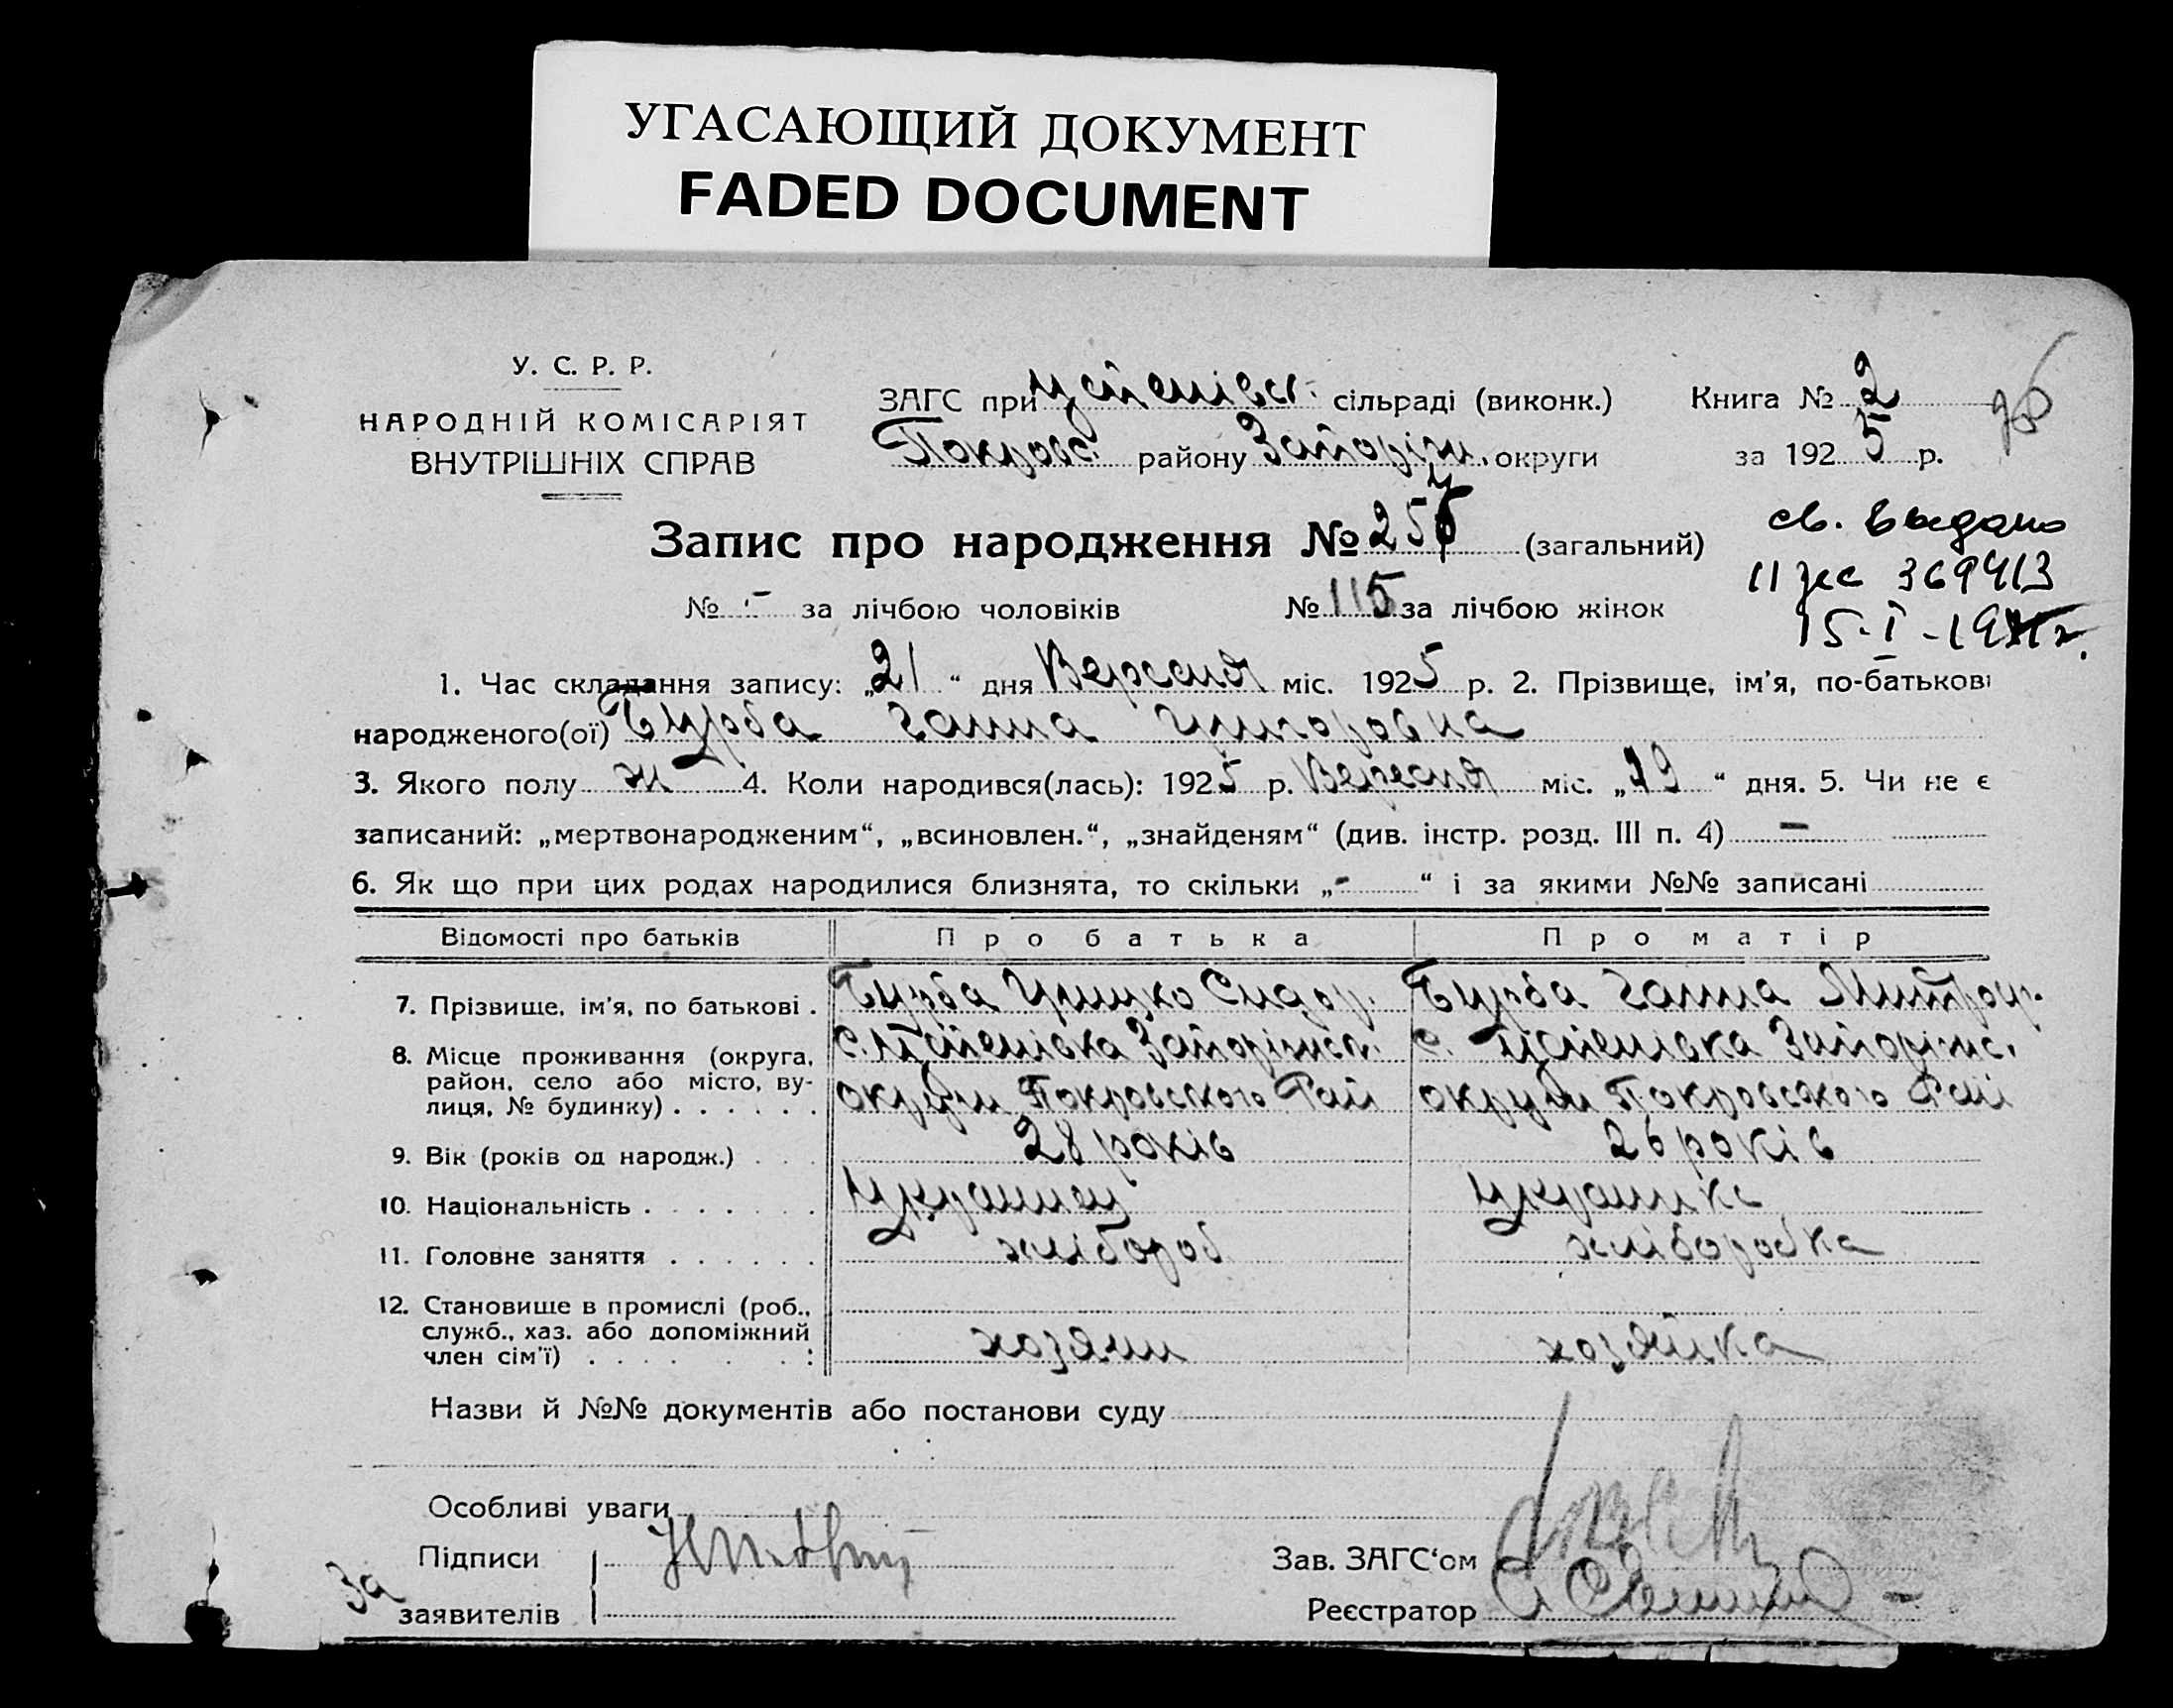 УГАСАЮЩИЙ ДОКУМЕНТ
FADED DOCUMENT
У. С. Р. Р.
НАРОДНІЙ КОМІСАРІЯТ
ВНУТРІШНІХ СПРАВ
ЗАГС при Устенівск. сільраді (виконк.)
Покровс. району Запоріж. округи
Книга № 2
за 1925 р.
Запис про народження № 257 (загальний)
св. выдано
II ЖС 369413
15-I-19
№ - за лічбою чоловіків № 115 за лічбою жінок
1. Час складання запису: „21“ дня Вересня міс. 1925 р. 2. Прізвище, ім'я, по-батькові
народженого(ої) Бурба Ганна Григоровна
3. Якого полу ж 4. Коли народився(лась): 1925 р. Вересня міс. „19“ дня. 5. Чи не є
записаний: „мертвонародженим“, „всиновлен.“, „знайденям“ (див. інстр. розд. III п. 4) -
6. Як що при цих родах народилися близнята, то скільки „-“ і за якими №№ записані
Відомості про батьків Про батька Про матір
7. Прізвище, ім'я, по батькові . Бурба Грицко Сидор. Бурба Ганна Митроф.
8. Місце проживання (округа, с. Устенівка Запоріжск. с. Устенівка Запоріжс.
район, село або місто, ву-
лиця, № будинку) . . . . . . округи Покровского Рай округи Покровского Рай
9. Вік (років од народж.) . . . 28 років 26 років
10. Національність . . . . . . . Украинец Украинка
11. Головне заняття . . . . . . хлібороб хліборобка
12. Становище в промислі (роб.,
служб., хаз. або допоміжний
член сім'ї) . . . . . . : хозяин хозяйка
Назви й №№ документів або постанови суду
Особливі уваги
Підписи
За заявителів
Зав. ЗАГС‘ом
Реєстратор